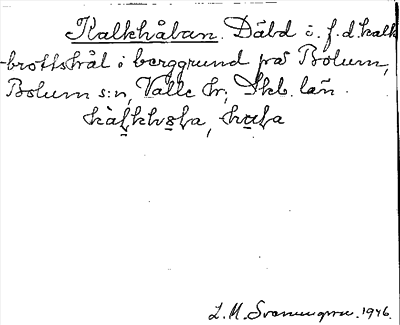 Kalkhålan. Däld i f. d. kalk
-brottshål i berggrund på Bolum,
Bolum s:n, Valle hr; Skb. län.
L. M. Svanungsson. 1946.